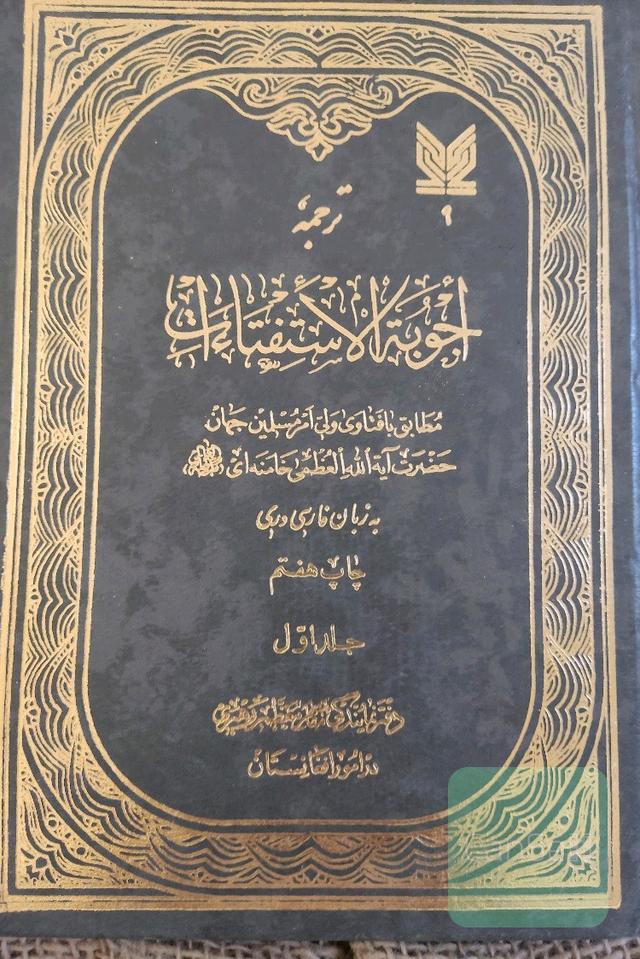 ۹
ترجمهٔ
أجوبة الاستفتاءات
مطابق با فتاوی ولی امر مسلمین جهان
حضرت آیة الله العظمی خامنه‌ای
به زبان فارسی دری
چاپ هفتم
جلد اوّل
دفتر نمایندگی مقام معظم رهبری
در امور افغانستان